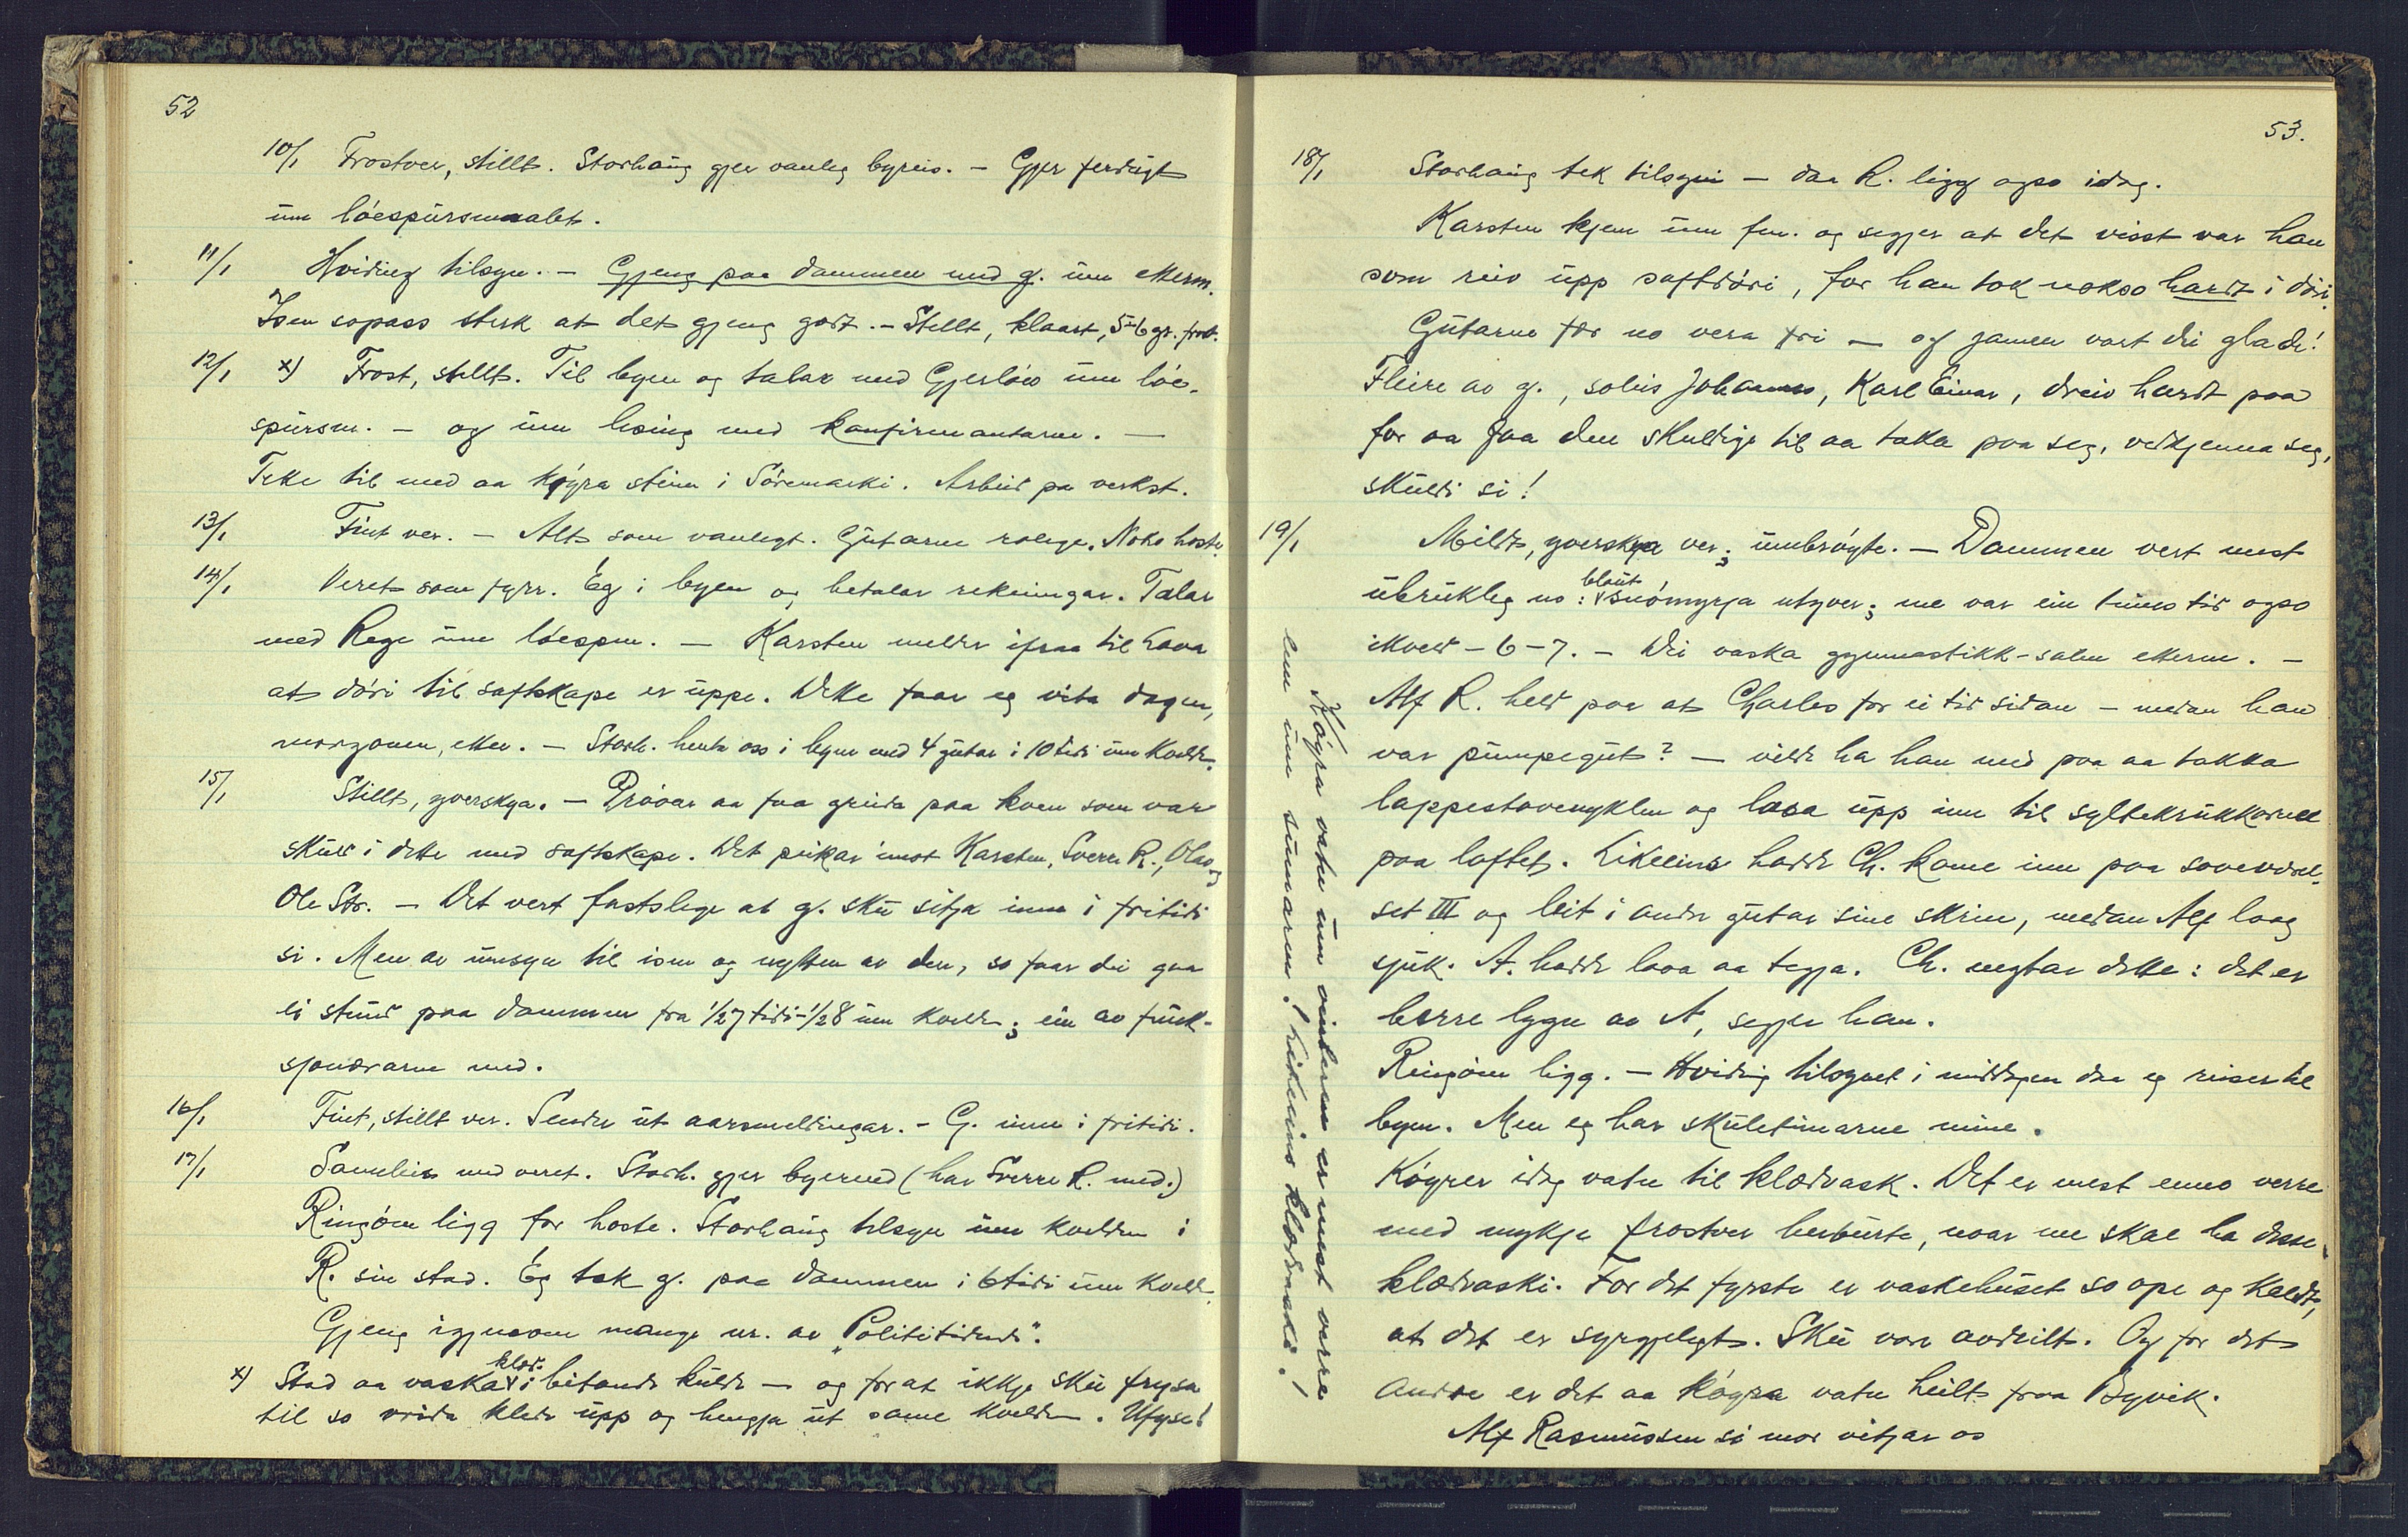 52
10/1 Frostver, stillt. Storhaug gjer vanleg byreis. – Gjer ferdigt
um löespursmaalet.
11/1 Hviding tilsyn. – Gjeng paa dammen med g. um etterm.
Isen sopass sterk at det gjeng godt. – Stillt, klaart, 5–6 gr. frost.
12/1 x) Frost, stillt. Til byen og talar med Gjerlöw um löe-
spursm. – og um lesing med konfirmantarne. –
Teke til med aa köyra stein i Söremarki. Arbeid pa verkst.
13/1 Fint ver. – Alt som vanlegt. Gutarne rolege. Noko hoste.
14/1 Veret som fyrr. Eg i byen og betalar rekningar. Talar
med Rege um löespm. – Karsten melder ifraa til Lova
at döri til saftskape er uppe. Dette faar eg vita dagen,
morgonen, etter. – Storh. henta oss i byen med 4 gutar i 10 tidi um kvelden.
15/1 Stillt, yverskya. – Prövar aa faa greida paa kven som var
skuld i dette med saftskape. Det peikar imot Karsten, Sverre R., Olav og
Ole Str. – Det vert fastslege at g. sku sitja inne i fritidi
si. Men av umsyn til isen og nytten av den, so faar dei gaa
ei stund paa dammen fra 1/2 7 tidi–1/2 8 um kvelden; ein av funk-
sjonærarne med.
16/1 Fint, stillt ver. Sender ut aarsmeldingar. – G. inne i fritidi.
17/1 Sameleis med veret. Storh. gjer byerend (har Sverre R. med.)
Ringöen ligg for hoste. Storhaug tilsyn um kvelden i
R. sin stad. Eg tek g. paa dammen i 6 tidi um kvelden.
Gjeng igjenom mange nr. av "Polititidende".
x) Stod aa vaska klær i bitande kulde – og for at ikkje sku frysa
til so vrida klede upp og hengja ut same kvelden. Ufyse!
53.
18/1 Storhaug tek tilsyn – daa R. ligg ogso idag.
Karsten kjem inn fm. og segjer at det visst var han
som reiv upp saftdöri, for han tok nokso hardt i döri.
Gutarne fær no vera fri – og gamen vart dei glade!
Fleire av g., soleis Johannes, Karl Einar, dreiv hardt paa
for aa faa den skuldige til aa taka paa seg, vedkjenna seg,
skuldi si!
19/1 Mildt, yverskya ver; umbröyte. – Dammen vert mest
ubrukleg no: blaut snömyrja utyver; me var ein times tid ogso
ikveld – 6–7. – Dei vaska gymnastikk-salen etterm. –
Alf R. held paa at Charles for ei tid sidan – medan han
var pumpegut? – vilde ha han med paa aa takka
lappestovenyklen og læsa upp inn til syltekrukkorne
paa loftet. Likeeins hadde Ch. kome inn paa soverommet
III og leit i andre gutar sine skrin, medan Alf laag
sjuk. A. hadde lova aa tegja. Ch. negtar dette: det er
berre lygn av A, segjer han.
Ringöen ligg. – Hviding tilsynet i middagen daa eg reiser til
byen. Men eg har skuletimarne mine.
Köyrer idag vatn til klædvask. Det er mest enno verre
med mykje frostver herburte, naar me skal ha desse
klædvaski. For det fyrste er vaskehuset so ope og kaldt,
at det er syrgjelegt. Sku vore avdeilt. Og for det
andre er det aa köyra vatn heilt fraa Byvik.
Alf Rasmussen si mor vitjar os
Köyra vatn um vinteren er mest verre
enn um sumaren! Likeeins klædvask!